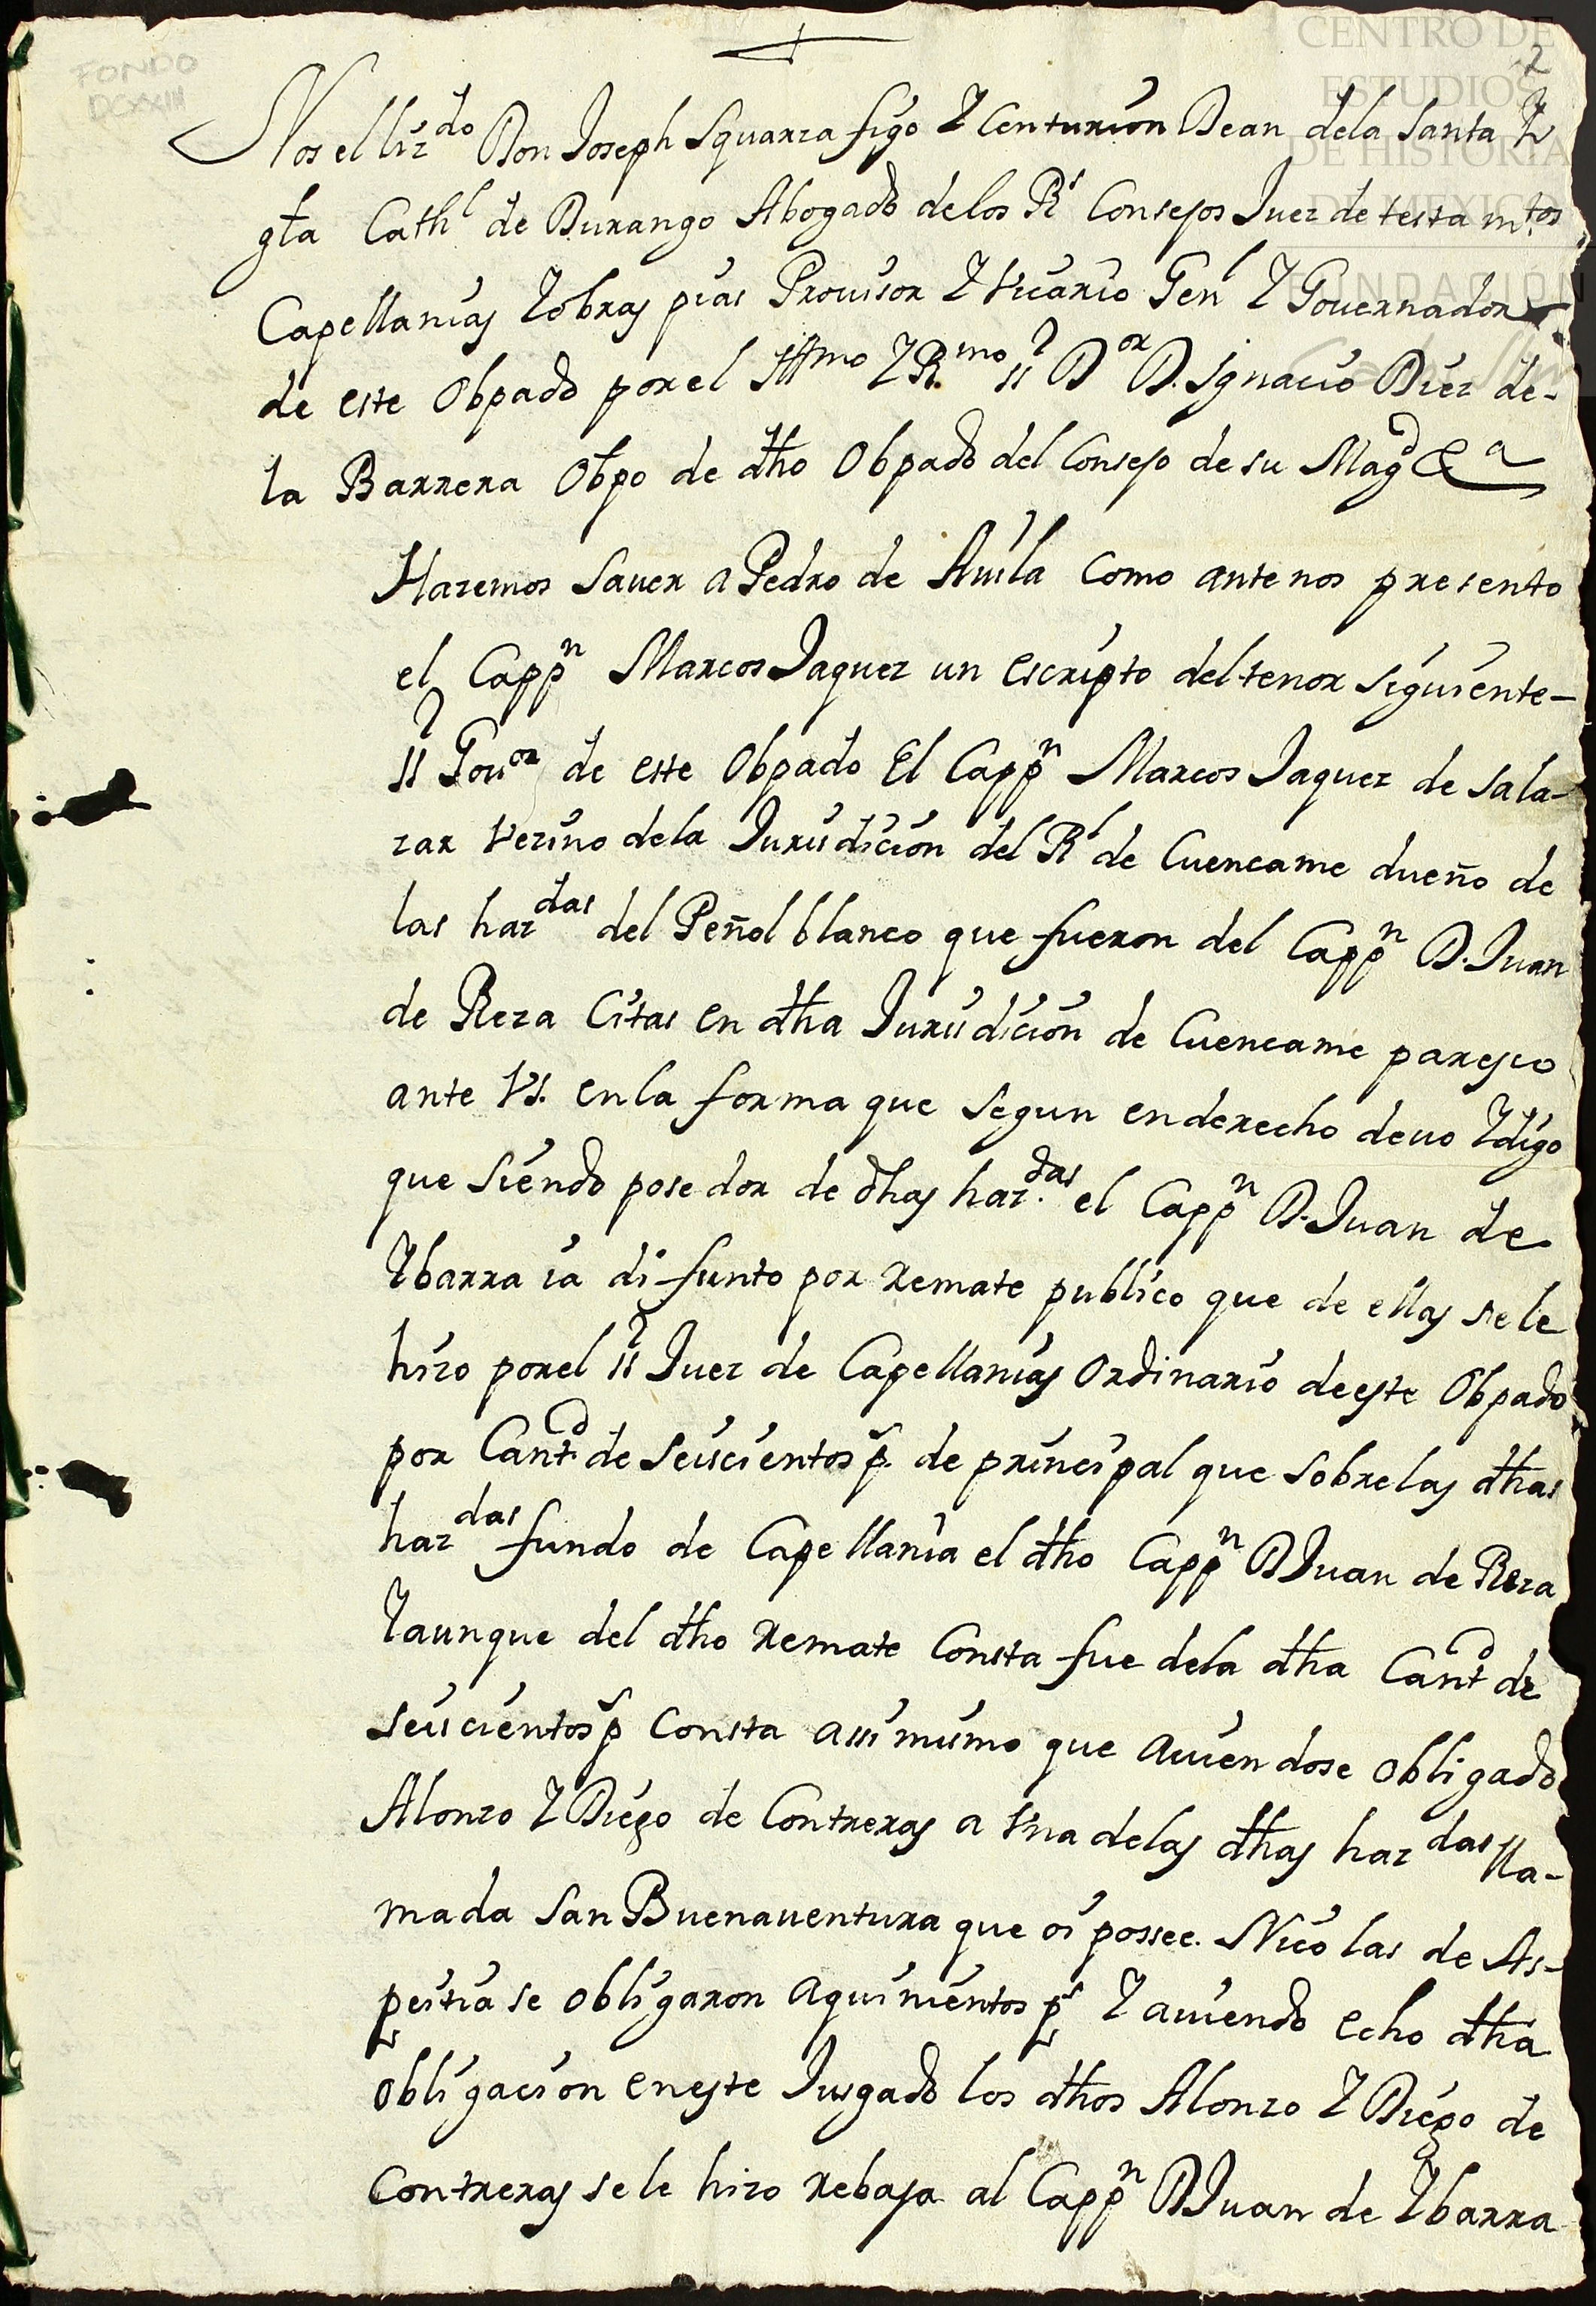 CENTRO DE
ESTUDIOS
DE HISTORIA
DE MEXICO
FUNDACIÓN
FONDO
DCXXIII
2
Nos el liz.do Don Joseph Squarza figo Y Centurion Dean dela Santa Y
gta Cathl de Durango Abogado delos Rs Consejos Juez de testa mtos
Capellanias Y obras pias Provisor Y Vicario Genl Y Governador
de este Obpado por el Illmo Y Rmo sr Dor D. Ignacio Diez de-
la Barrera Obpo de dho Obpado del Consejo de su Magd &a
Hazemos Saver a Pedro de Auila Como ante nos presento
el Cappn Marcos Jaquez un escripto del tenor siguiente-
sr Gouor de este Obpado El Cappn Marcos Jaquez de sala-
zar Vezino dela Jurisdicion del Rl de Cuencame dueño de
las hazdas del Peñol blanco que fueron del Cappn D. Juan
de Reza Citas en dha Jurisdicion de Cuencame paresco
ante Vs. en la forma que segun en derecho deuo Y digo
que siendo posedor de dhas haz.das el Cappn D. Juan de
Ybarra ia difunto por Remate publico que de ellas se le
hizo por el sr Juez de Capellanias Ordinario de este Obpado
por Cantd de seiscientos ps. de principal que sobre las dhas
hazdas fundo de Capellania el dho Cappn D Juan de Reza
Y aunque del dho Remate Consta fue dela dha Cantd de
seiscientos ps Consta assi mismo que auiendose obligado
Alonzo Y Diego de Contreras a Vna delas dhas hazdas lla-
mada San Buenauentura que oi possee. Nicolas de As-
peitia se obligaron a quinientos ps Y auiendo echo dha
obligacion en este Jusgado los dhos Alonzo Y Diego de
Contreras se le hizo rebaja al Cappn D Juan de Ybarra